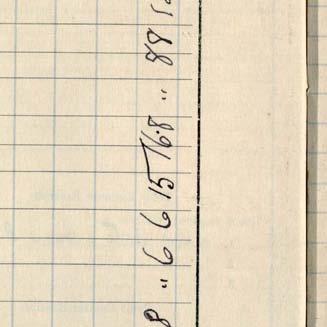 8 " 6 6 15 16.8 " 88